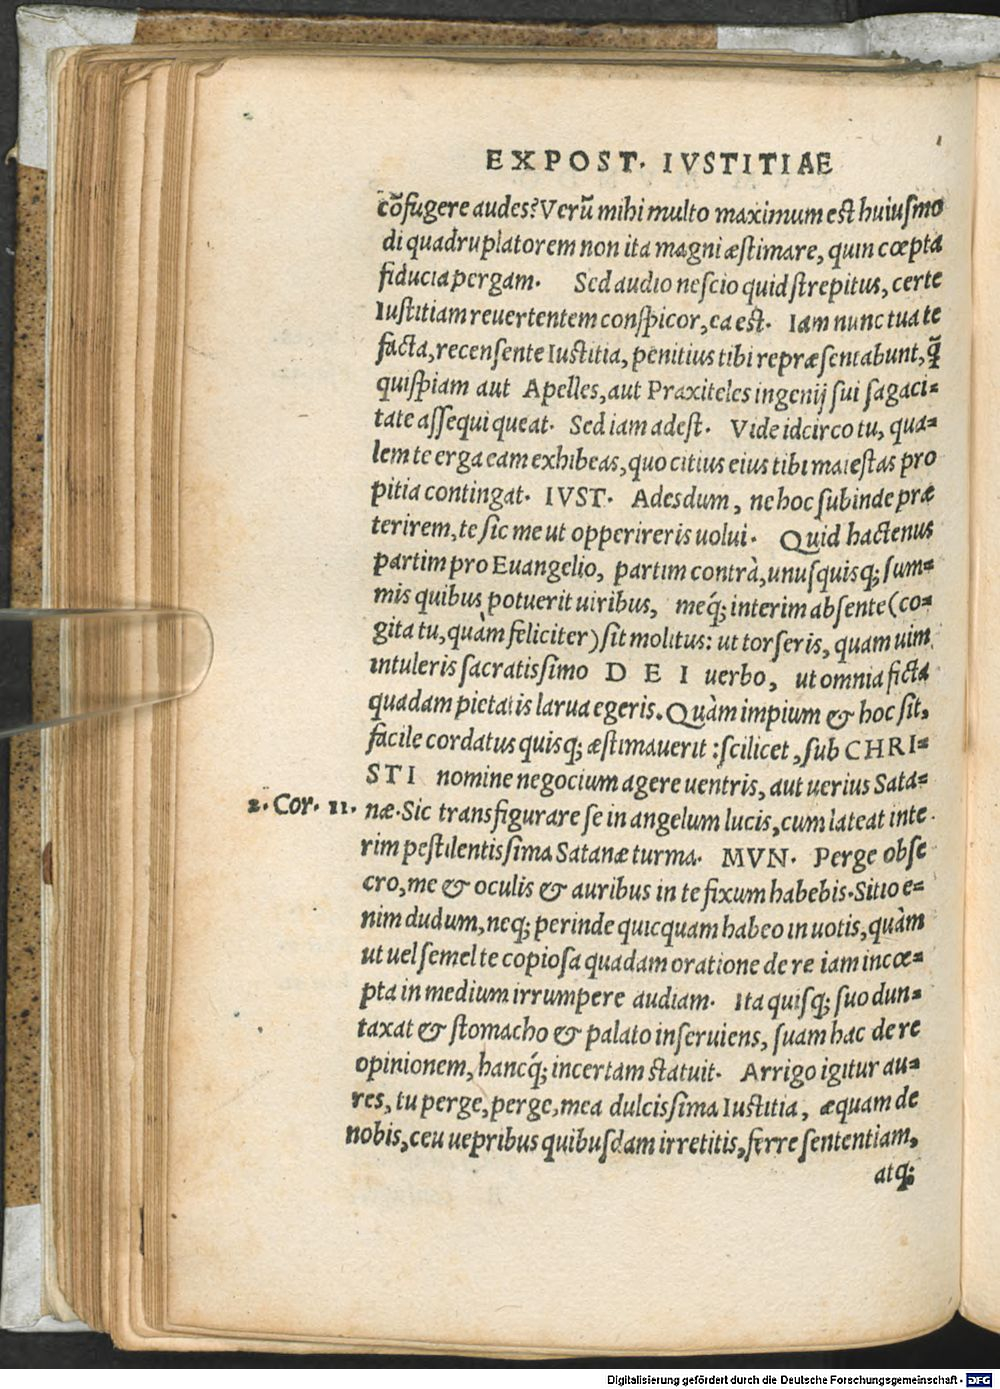 EXPOST. IVSTITIAE
cõfugere audes? Verũ mihi multo maximum est huiusmo
di quadruplatorem non ita magni æstimare, quin cœpta
fiducia pergam. Sed audio nescio quid strepitus, certe
Iustitiam reuertentem conspicor, ea est. Iam nunc tua te
facta, recensente Iustitia, penitius tibi repræsentabunt, q̃
quispiam aut Apelles, aut Praxiteles ingenij sui sagaci=
tate assequi queat. Sed iam adest. Vide idcirco tu, qua=
lem te erga eam exhibeas, quo citius eius tibi maiestas pro
pitia contingat. IVST. Adesdum, ne hoc subinde præ
terirem, te sic me ut opperireris uolui. Quid hactenus
partim pro Euangelio, partim contrà, unusquisq; sum=
mis quibus potuerit uiribus, meq́; interim absente (co=
gita tu, quàm feliciter) sit molitus: ut torseris, quam uim
intuleris sacratissimo DEI uerbo, ut omnia ficta
quadam pietatis larua egeris. Quàm impium & hoc sit,
facile cordatus quisq; æstimauerit: scilicet, sub CHRI=
STI nomine negocium agere uentris, aut uerius Sata=
2. Cor. 11. næ. Sic transfigurare se in angelum lucis, cum lateat inte
rim pestilentissima Satanæ turma. MVN. Perge obse
cro, me & oculis & auribus in te fixum habebis. Sitio e=
nim dudum, neq; perinde quicquam habeo in uotis, quàm
ut uel semel te copiosa quadam oratione de re iam incœ=
pta in medium irrumpere audiam. Ita quisq; suo dun=
taxat & stomacho & palato inseruiens, suam hac de re
opinionem, hancq́; incertam statuit. Arrigo igitur au=
res, tu perge, perge, mea dulcissima Iustitia, æquam de
nobis, ceu uepribus quibusdam irretitis, ferre sententiam,
atq;
Digitalisierung gefördert durch die Deutsche Forschungsgemeinschaft - DFG